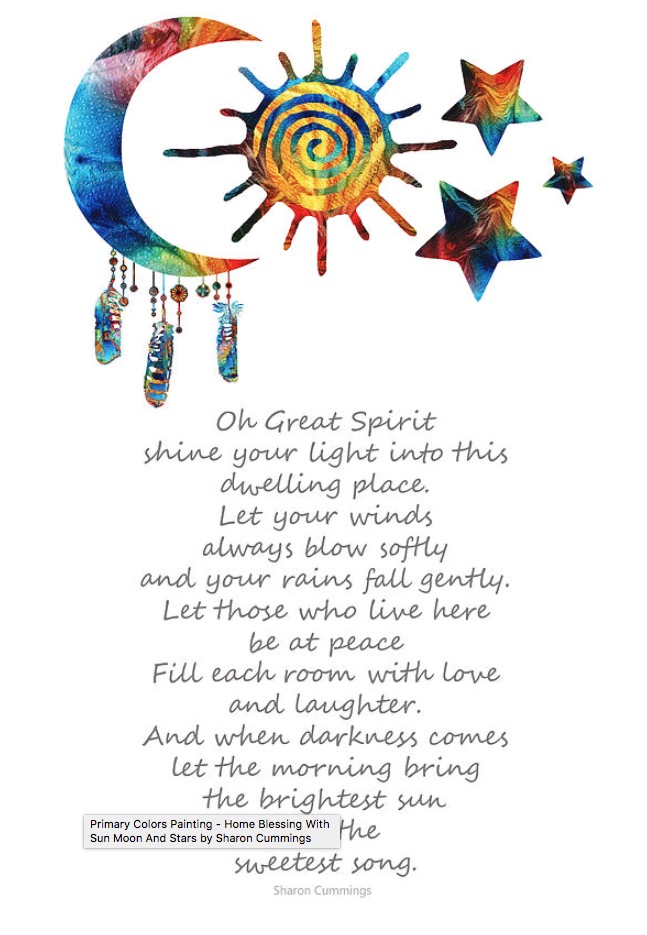 Oh Great Spirit
shine your light into this
dwelling place.
Let your winds
always blow softly
and your rains fall gently.
Let those who live here
be at peace
Fill each room with love
and laughter.
And when darkness comes
let the morning bring
the brightest sun
the
Primary Colors Painting - Home Blessing With
Sun Moon And Stars by Sharon Cummings
sweetest song.
Sharon Cummings